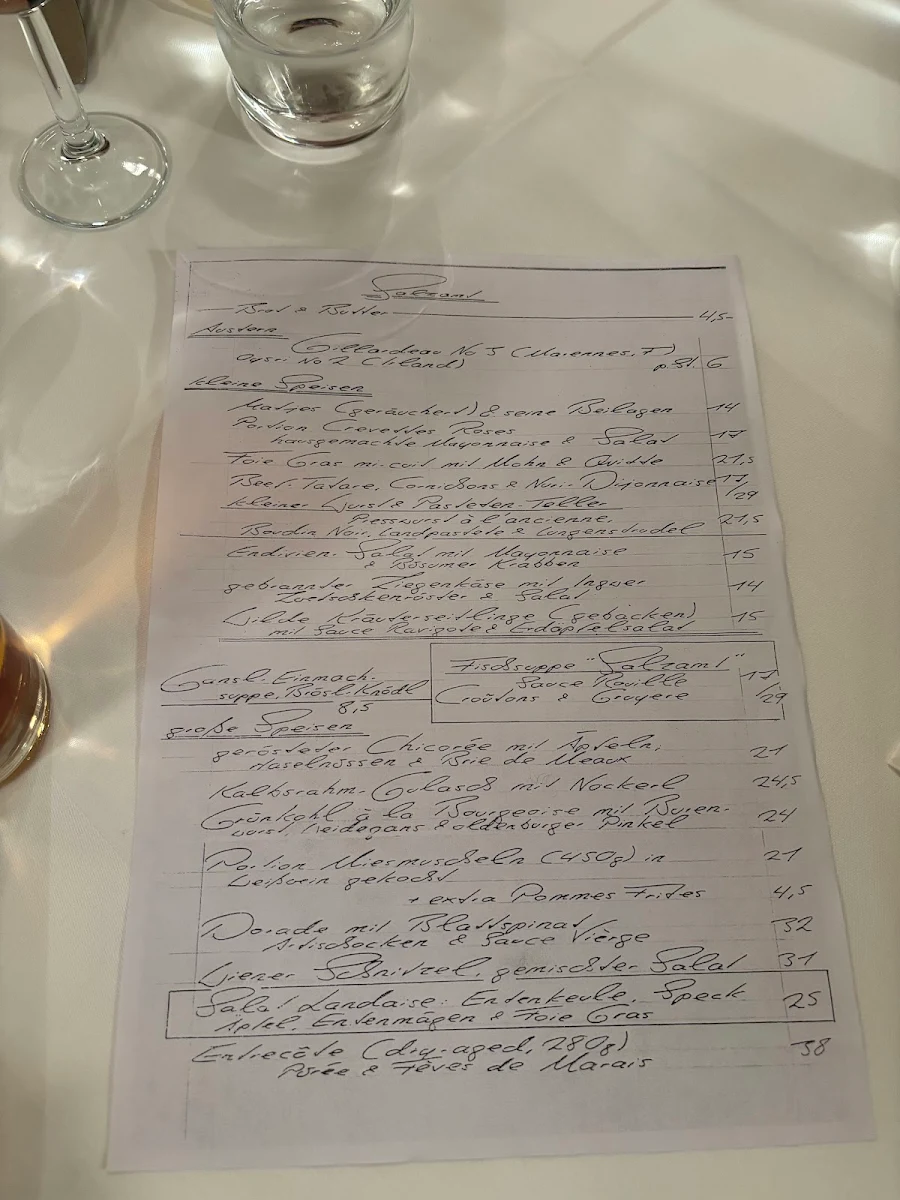 Salzamt
Brot & Butter 4,5-
Austern
Gillardeau No 3 (Marennes, F)
No 2 (Irland) p. St. 6
kleine Speisen
Matjes (geräuchert) & seine Beilagen 14
Portion Crevettes Roses
hausgemachte Mayonnaise & Salat 17
Foie Gras mi-cuit mit Mohn & Quitte 21,5
Beef-Tatare, Cornichons & Dijonnaise 17/29
kleiner Wurst & Pasteten-Teller
Presswurst à l'ancienne, 21,5
Boudin Noir, Landpastete & Lungenstrudel
Endivien-Salat mit Mayonnaise 15
& Büsumer Krabben
gebrannter Ziegenkäse mit Ingwer 14
Zwetschkenröster & Salat
Wilde Kräuterseitlinge (gebacken) 15
mit Sauce Ravigote & Erdäpfelsalat
Gansl-Einmach-
suppe, Brösl-Knödl
8,5
Fischsuppe "Salzamt" 17/29
Sauce Rouille
Croûtons & Gruyere
große Speisen
gerösteter Chicorée mit Äpfeln, 21
Haselnüssen & Brie de Meaux
Kalbsrahm-Gulasch mit Nockerl 24,5
Grünkohl à la Bourgeoise mit Buren- 24
wurst, Weidegans & oldenburger Pinkel
Portion Miesmuscheln (450g) in 21
Weißwein gekocht
+ extra Pommes Frites 4,5
Dorade mit Blattspinat, 32
Artischocken & Sauce Vièrge
Wiener Schnitzel, gemischter Salat 31
Salat Landaise: Entenkeule, Speck 25
Äpfel, Entenmägen & Foie Gras
Entrecôte (dry-aged, 280g) 38
Pürée & Fèves de Marais